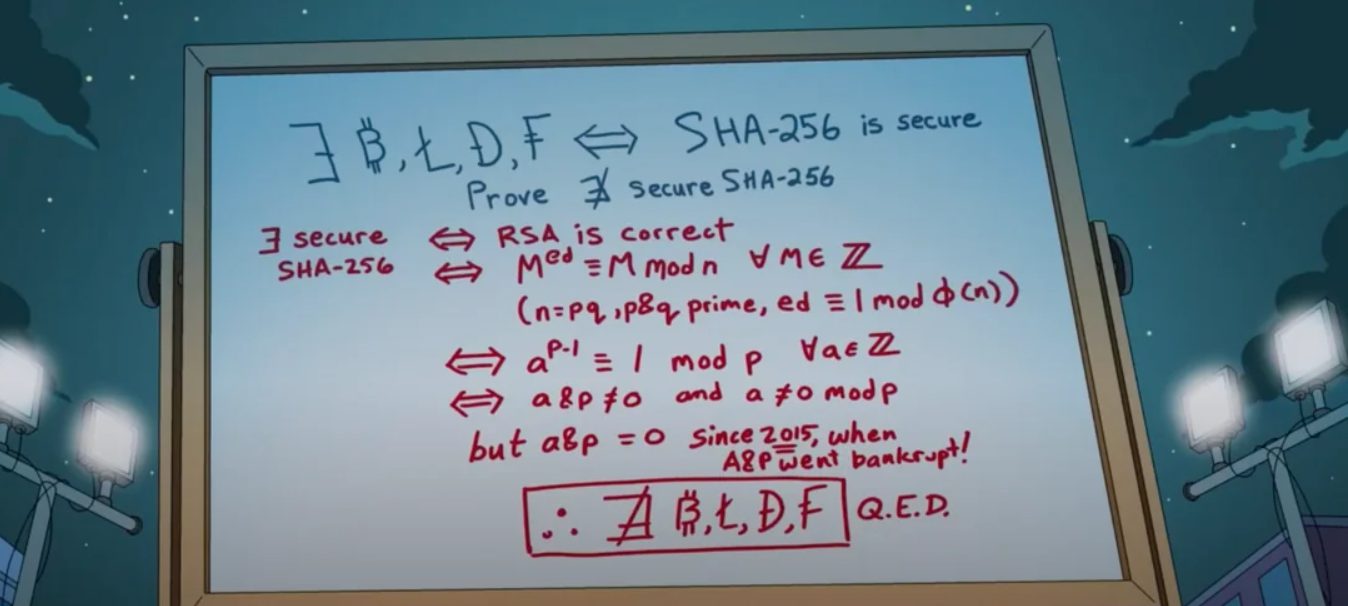 ∃ ₿, Ł, Đ, ₣ ⟺ SHA-256 is secure
Prove ∄ secure SHA-256
∃ secure ⟺ RSA is correct
SHA-256 ⟺ M^ed ≡ M mod n ∀ M ∈ ℤ
(n=pq, p&q prime, ed ≡ 1 mod ϕ(n))
⟺ a^p-1 ≡ 1 mod p ∀a ∈ ℤ
⟺ a&p ≠ 0 and a ≠ 0 mod p
but a&p = 0 since 2015, when
A&P went bankrupt!
∴ ∄ ₿, Ł, Đ, ₣ Q.E.D.